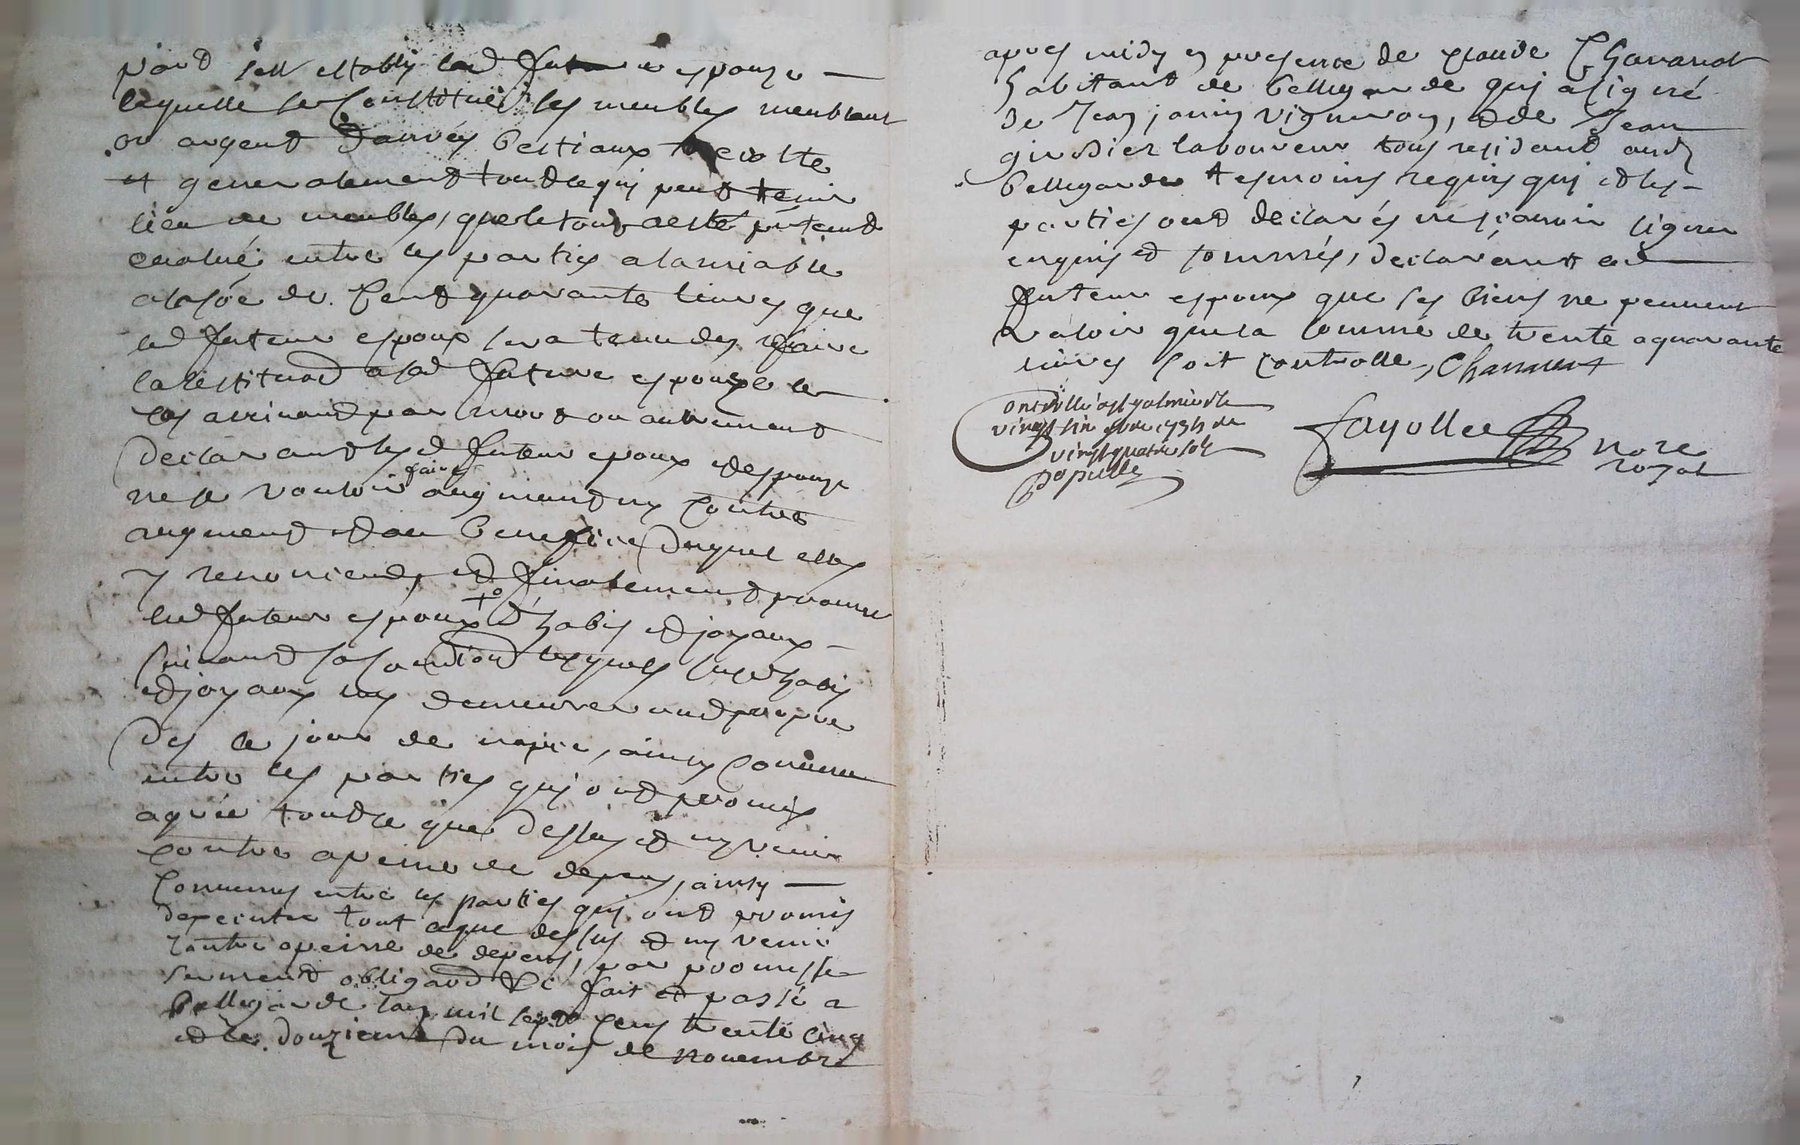 s'est estably lad future espouze
laquelle se Constitue ses meubles meublant
or argent danrés bestiaux Recolte
et generalement tout ce quj peut tenir
lieu de meubles, que le tout a esté
evalué entre les parties a lamiable
de Cent quarante livres que
led futeur espoux sera tenu des faire
la restituõn a sad future espouze le
cas arrivant par mort ou autrement
Declarant lesd futeur epoux et espouze
ne se vouloir faire augment ny Contre
augment et au benefice duquel elles
y renoncient, et finalement promet
led futeur espoux d'habis et joyaux
suivant sa lesquels susd habis
et joyaux luy demeureront propre
Des le jour de nopce, ainsy Convenu
entre les parties quj ont promis
agrée tout ce que dessus et ny venir
Contre a peine de depens, ainsy
Convenus entre les parties quj ont promis
dexecuter tout ce que dessus et ny venir
Contre a peine de depens, par promesse
serment obligaõn &c fait et passé a
bellegarde lan mil sept Cens trente Cinq
et le douzieme du mois de novembre
apres midy en presence de Claude Chavanat
habitant de bellegarde quj a signé
De Jean vigneron, et de Jean
laboureur tous residant aud
bellegarde tesmoins requis quj et les
parties ont declarés ne sçavoir signer
enquis et sommés, declarant led
futeur espoux que ses biens ne peuvent
valoir que la somme de trente a quarante
livres soit Controlle,
Controllé a st galmier le
vingt 9bre 1735 Re
vingt quatre sols

fayolle No.re
royal